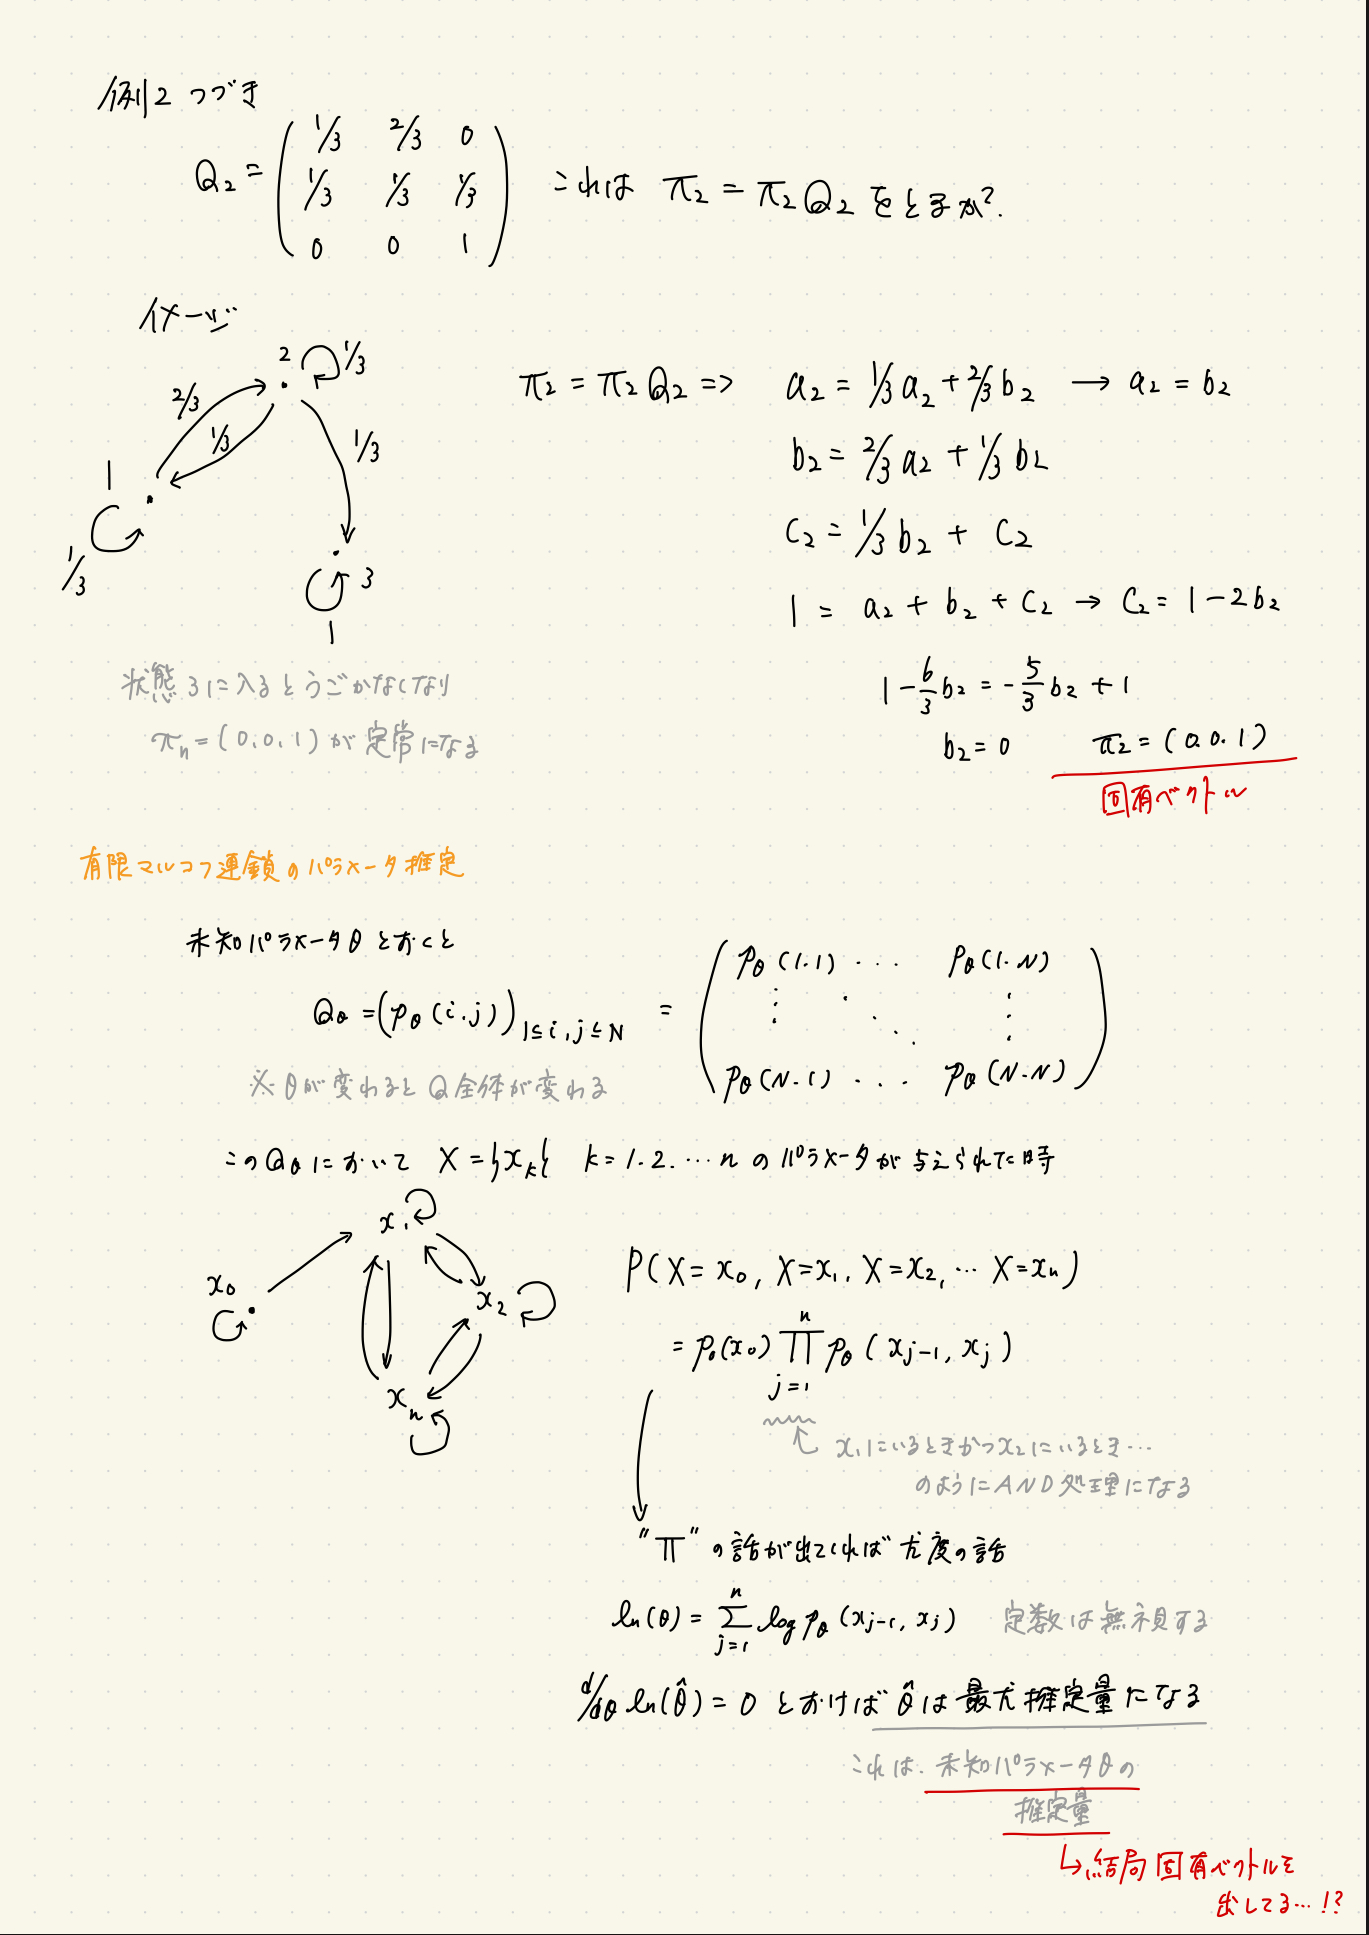 例2 つづき
Q₂ = ( 1/3 2/3 0
1/3 1/3 1/3
0 0 1 ) これは π₂ = π₂Q₂ をとるか?
イメージ
2 1/3
2/3 1/3 1/3
1 1/3
3 1
π₂ = π₂Q₂ => a₂ = 1/3 a₂ + 2/3 b₂ → a₂ = b₂
b₂ = 2/3 a₂ + 1/3 b₂
c₂ = 1/3 b₂ + c₂
1 = a₂ + b₂ + c₂ → c₂ = 1 - 2b₂
1 - 6/3 b₂ = - 5/3 b₂ + 1
b₂ = 0 π₂ = (0.0.1)
固有ベクトル
状態3に入るとうごかなくなり
πn = (0.0.1) が定常になる
有限マルコフ連鎖のパラメータ推定
未知パラメータθとおくと
Qθ = (pθ(i.j))1≤i,j≤N = ( pθ(1.1) ... pθ(1.N)
⋮ ⋱ ⋮
pθ(N.1) ... pθ(N.N) )
※θが変わるとQ全体が変わる
このQθにおいて X = {xk} k=1.2.…n のパラメータが与えられた時
x₀ x₁ x₂ xn
P(X = x₀, X = x₁, X = x₂, … X = xn)
= p₀(x₀) ∏ⁿj=1 pθ(xj-1, xj)
x₁にいるときかつx₂にいるとき…
のようにAND処理になる
"∏" の話が出てくれば尤度の話
ln(θ) = Σⁿj=1 log pθ(xj-1, xj) 定数は無視する
d/dθ ln(θ̂) = 0 とおけば θ̂は最尤推定量になる
これは.未知パラメータθの
推定量
↳結局固有ベクトルを
出してる…!?